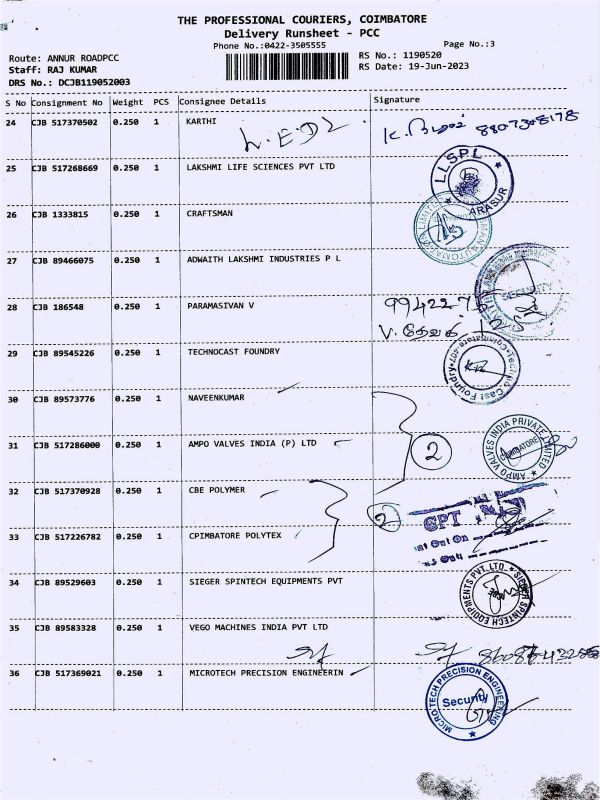 THE PROFESSIONAL COURIERS, COIMBATORE
Delivery Runsheet - PCC
Phone No.:0422-3505555
Page No.:3
Route: ANNUR ROADPCC
Staff: RAJ KUMAR
DRS No.: DCJB119052003
RS No.: 1190520
RS Date: 19-Jun-2023
S No Consignment No Weight PCS Consignee Details Signature
24 CJB 517370502 0.250 1 KARTHI
25 CJB 517268669 0.250 1 LAKSHMI LIFE SCIENCES PVT LTD
LLSPL
ARASUR
26 CJB 1333815 0.250 1 CRAFTSMAN
27 CJB 89466075 0.250 1 ADWAITH LAKSHMI INDUSTRIES P L
SECURITY
28 CJB 186548 0.250 1 PARAMASIVAN V
V. தேவகி
29 CJB 89545226 0.250 1 TECHNOCAST FOUNDRY
30 CJB 89573776 0.250 1 NAVEENKUMAR
31 CJB 517286000 0.250 1 AMPO VALVES INDIA (P) LTD
2
AMPO VALVES INDIA PRIVATE LIMITED
COIMBATORE
32 CJB 517370928 0.250 1 CBE POLYMER
2
GPT
33 CJB 517226782 0.250 1 CPIMBATORE POLYTEX
34 CJB 89529603 0.250 1 SIEGER SPINTECH EQUIPMENTS PVT
SIEGER SPINTECH EQUIPMENTS PVT. LTD.
35 CJB 89583328 0.250 1 VEGO MACHINES INDIA PVT LTD
36 CJB 517369021 0.250 1 MICROTECH PRECISION ENGINEERIN
MICRO TECH PRECISION ENGINEERING
Security